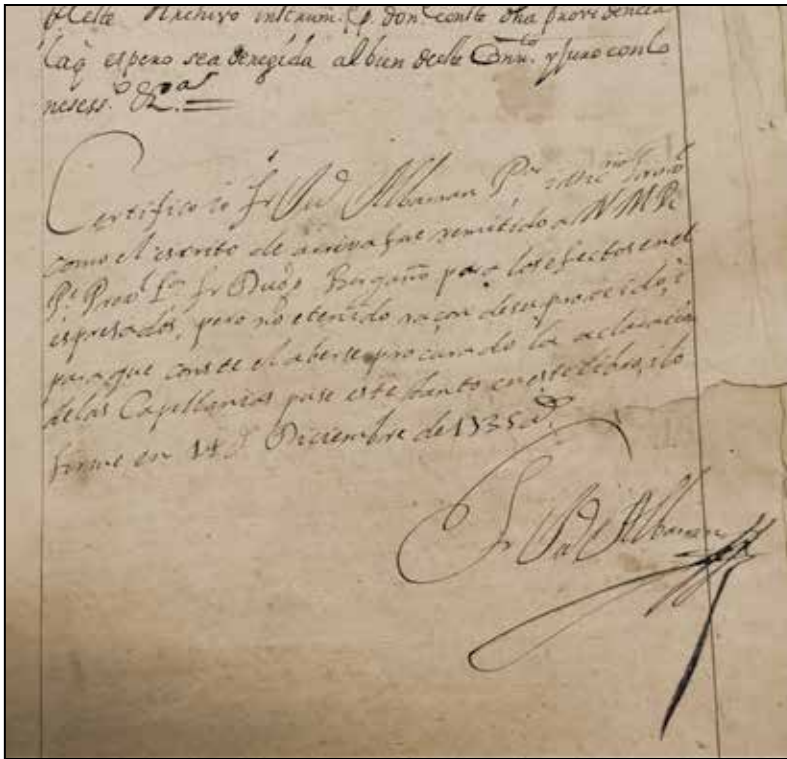 deste Archivo instrum. p. don conste dha providencia
laq espero sea dirigida al bien deste Conv.to y juro en lo
necess.o &.as
Certifico io fr Albaman P.
como el escrito de arriva fue remitido a N M R
P.e Prov.l fr Bergaño para los efectos en el
espresados, pero no e tenido raçon de su procedido, i
para que conste el aberse procurado la aclaracion
de las Capellanias puse este tanto en este libro, i lo
firme en 14 d Diciembre de 1735 a.s
Fr Albaman